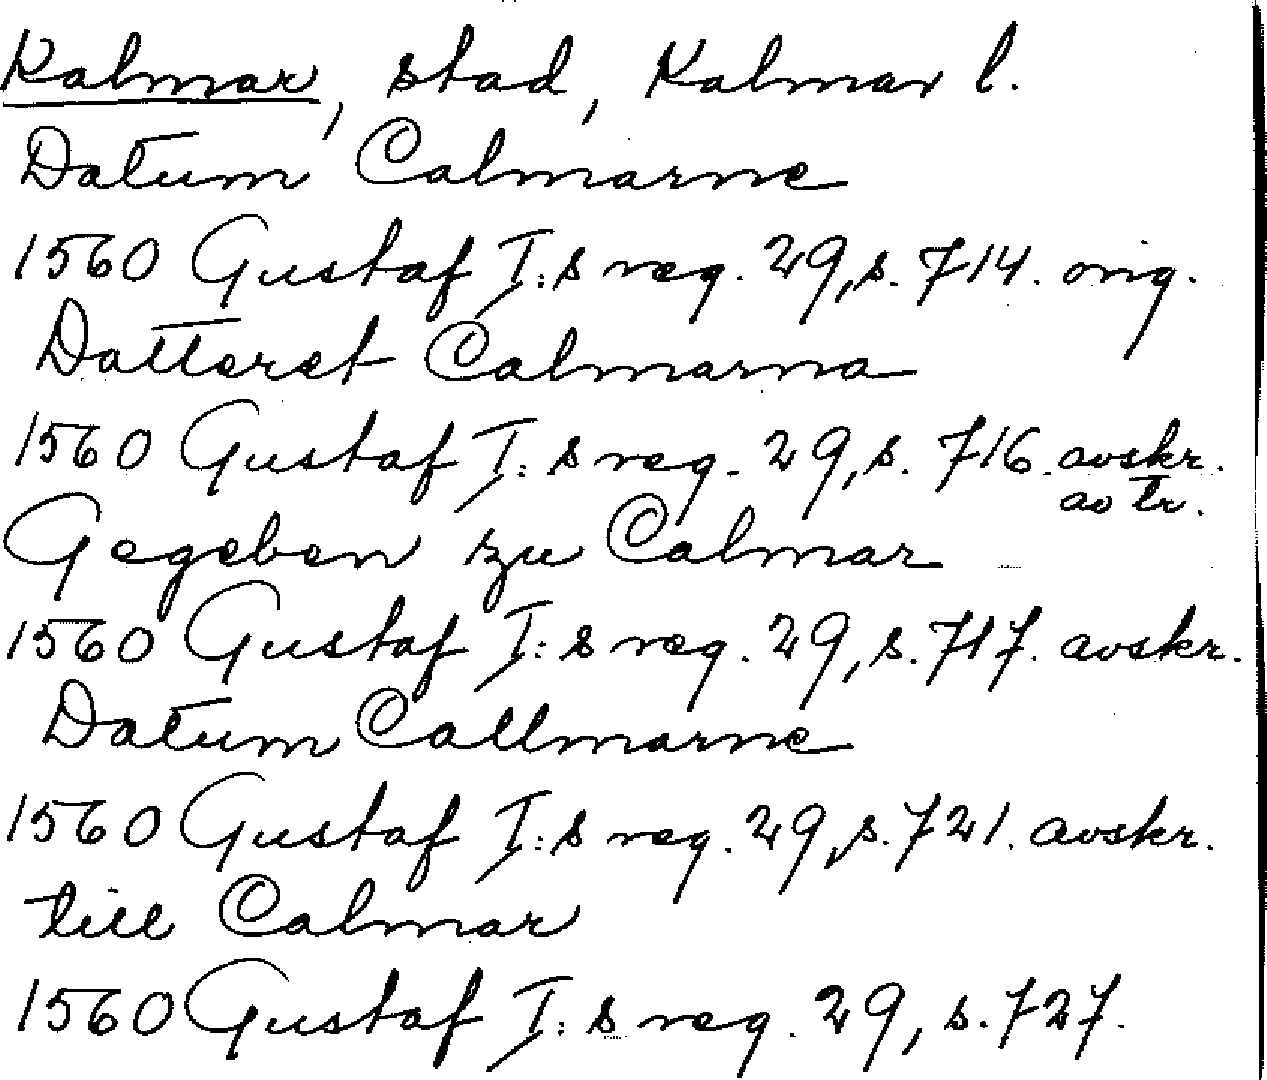 Kalmar, stad, Kalmar l.
Datum Calmarne
1560 Gustaf I:s reg. 29, s. 714. orig.
Datteret Calmarna
1560 Gustaf I:s reg. 29, s. 716. avskr.
av tr.
Gegeben zu Calmar
1560 Gustaf I:s reg. 29, s. 717. avskr.
Datum Callmarne
1560 Gustaf I:s reg. 29, s. 721. avskr.
till Calmar
1560 Gustaf I:s reg. 29, s. 727.